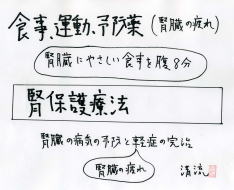 食事、運動、予防薬(腎臓の疲れ)
腎臓にやさしい食事を腹8分
腎保護療法
腎臓の病気の予防と軽症の完治
腎臓の疲れ
清流